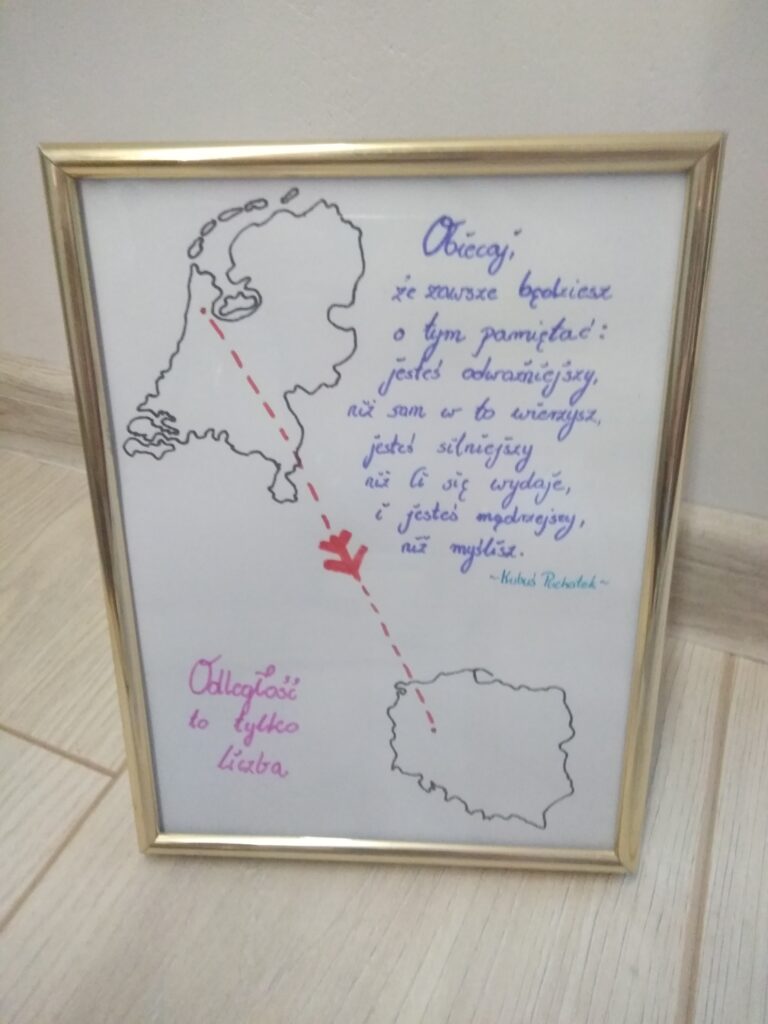 Obiecaj,
że zawsze będziesz
o tym pamiętać:
jesteś odważniejszy,
niż sam w to wierzysz,
jesteś silniejszy
niż Ci się wydaje,
i jesteś mądrzejszy,
niż myślisz.
~Kubuś Puchatek~
Odległość
to tylko
liczba